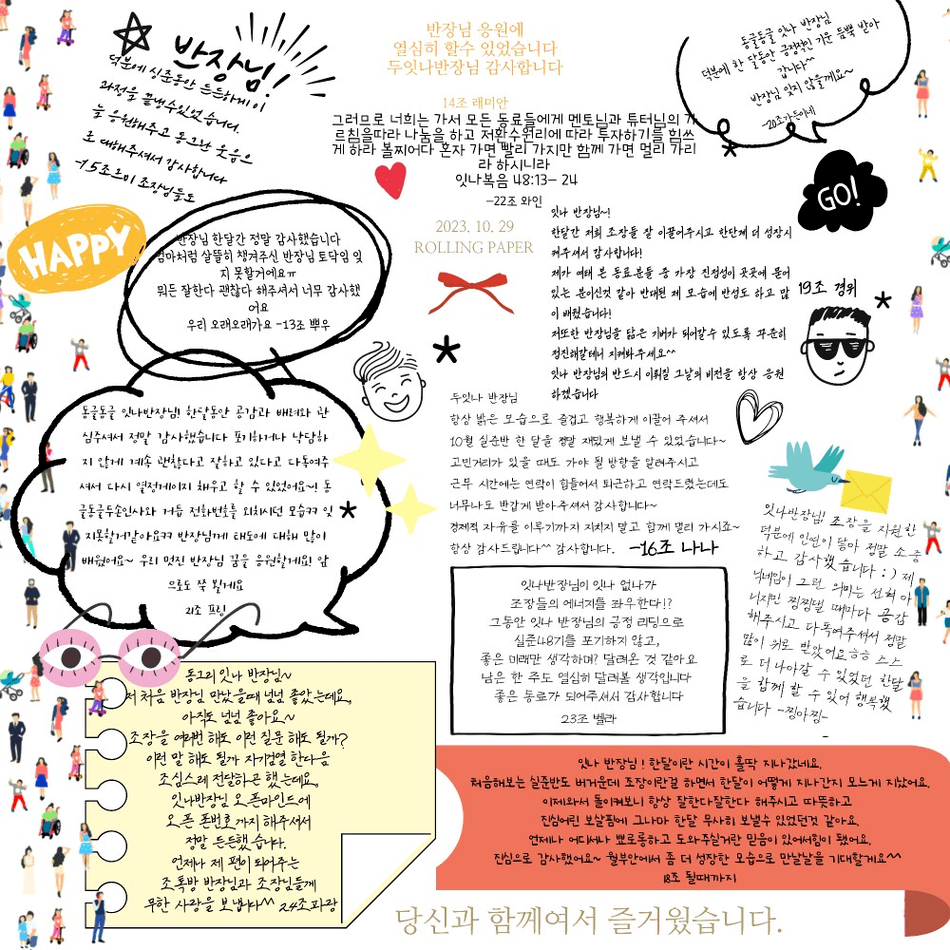 반장님!
덕분에 실준동안 든든하게 이
과정을 끝낼수있었습니다.
늘 응원해주고 동그란 웃음으
로 대해주셔서 감사합니다
-15조르미 조장님들도
반장님 응원에
열심히 할수 있었습니다
두잇나반장님 감사합니다
14조 래미안
그러므로 너희는 가서 모든 동료들에게 멘토님과 튜터님의 가
르침을따라 나눔을 하고 저환수원리에 따라 투자하기를 힘쓰
게 하라 볼찌어다 혼자 가면 빨리 가지만 함께 가면 멀리 가리
라 하시니라
잇나복음 48:13- 24
-22조 와인
동글동글 잇나 반장님
덕분에 한 달동안 긍정적인 기운 듬뿍 받아
갑니다~
반장님 잊지 않을게요~
GO!
HAPPY
반장님 한달간 정말 감사했습니다
엄마처럼 살뜰히 챙겨주신 반장님 토닥임 잊
지 못할거에요ㅠ
뭐든 잘한다 괜찮다 해주셔서 너무 감사했
어요
우리 오래오래가요 -13조 뿌우
2023. 10. 29
ROLLING PAPER
잇나 반장님~!
한달간 저희 조장들 잘 이끌어주시고 한단계 더 성장시
켜주셔서 감사합니다!
제가 여태 본 동료분들 중 가장 진정성이 곳곳에 묻어
있는 분이신것 같아 반대된 제 모습에 반성도 하고 많
이 배웠습니다!
저또한 반장님을 닮은 기버가 되어갈수 있도록 꾸준히
정진해갈테니 지켜봐주세요^^
잇나 반장님의 반드시 이뤄질 그날의 비전을 항상 응원
하겠습니다
19조 경위
동글동글 잇나반장님! 한달동안 공감과 배려와 관
심주셔서 정말 감사했습니다 포기하거나 낙담하
지 않게 계속 괜찮다고 잘하고 있다고 다독여주
셔서 다시 열정게이지 채우고 할 수 있었어요~! 동
글동글두손인사와 거듭 전화번호를 외치시던 모습ㅋㅋ 잊
지못할거같아요ㅋㅋ 반장님께 태도에 대해 많이
배웠어요~ 우리 멋진 반장님 꿈을 응원할게요! 앞
으로도 쭉 뵐게요
21조 프링
두잇나 반장님
항상 밝은 모습으로 즐겁고 행복하게 이끌어 주셔서
10월 실준반 한 달을 정말 재밌게 보낼 수 있었습니다~
고민거리가 있을 때도 가야 될 방향을 알려주시고
근무 시간에는 연락이 힘들어서 퇴근하고 연락드렸는데도
너무나도 반갑게 받아주셔서 감사합니다~
경제적 자유를 이루기까지 지치지 말고 함께 멀리 가시죠~
항상 감사드립니다^^ 감사합니다. -16조 나나
잇나반장님! 조장을 지원한
덕분에 인연이 닿아 정말 소중
하고 감사했습니다 :) 제
닉네임이 그런 의미는 전혀 아
니지만 찡찡댈 때마다 공감
해주시고 다독여주셔서 정말
많이 위로 받았어요ㅎㅎ 스스
로 더 나아갈 수 있었던 한달
을 함께 할 수 있어 행복했
습니다 -찡아찡-
잇나반장님이 잇나 없나가
조장들의 에너지를 좌우한다!?
그동안 잇나 반장님의 긍정 리딩으로
실준48기를 포기하지 않고,
좋은 미래만 생각하며? 달려온 것 같아요
남은 한 주도 열심히 달려볼 생각입니다
좋은 동료가 되어주셔서 감사합니다
23조 벨라
동그리 잇나 반장님~
저 처음 반장님 만났을때 넘넘 좋았는데요,
아직도 넘넘 좋아요~
조장을 여러번 해도 이런 질문 해도 될까?
이런 말 해도 될까 자기검열 한다음
조심스레 전달하곤 했는데요,
잇나반장님 오픈마인드에
오픈 폰번호까지 해주셔서
정말 든든했습니다.
언제나 제 편이 되어주는
조톡방 반장님과 조장님들께
무한 사랑을 보냅니다^^ 24조파랑
잇나 반장님! 한달이란 시간이 훌딱 지나갔네요.
처음해보는 실준반도 버거운데 조장이란걸 하면서 한달이 어떻게 지나간지 모르게 지났어요.
이제와서 돌이켜보니 항상 잘한다잘한다 해주시고 따뜻하고
진심어린 보살핌에 그나마 한달 무사히 보낼수 있었던것 같아요.
언제나 어디서나 뾰로롱하고 도와주실거란 믿음이 있어서힘이 됐어요.
진심으로 감사했어요~ 월부안에서 좀 더 성장한 모습으로 만날날을 기대할게요^^
18조 될때까지
당신과 함께여서 즐거웠습니다.